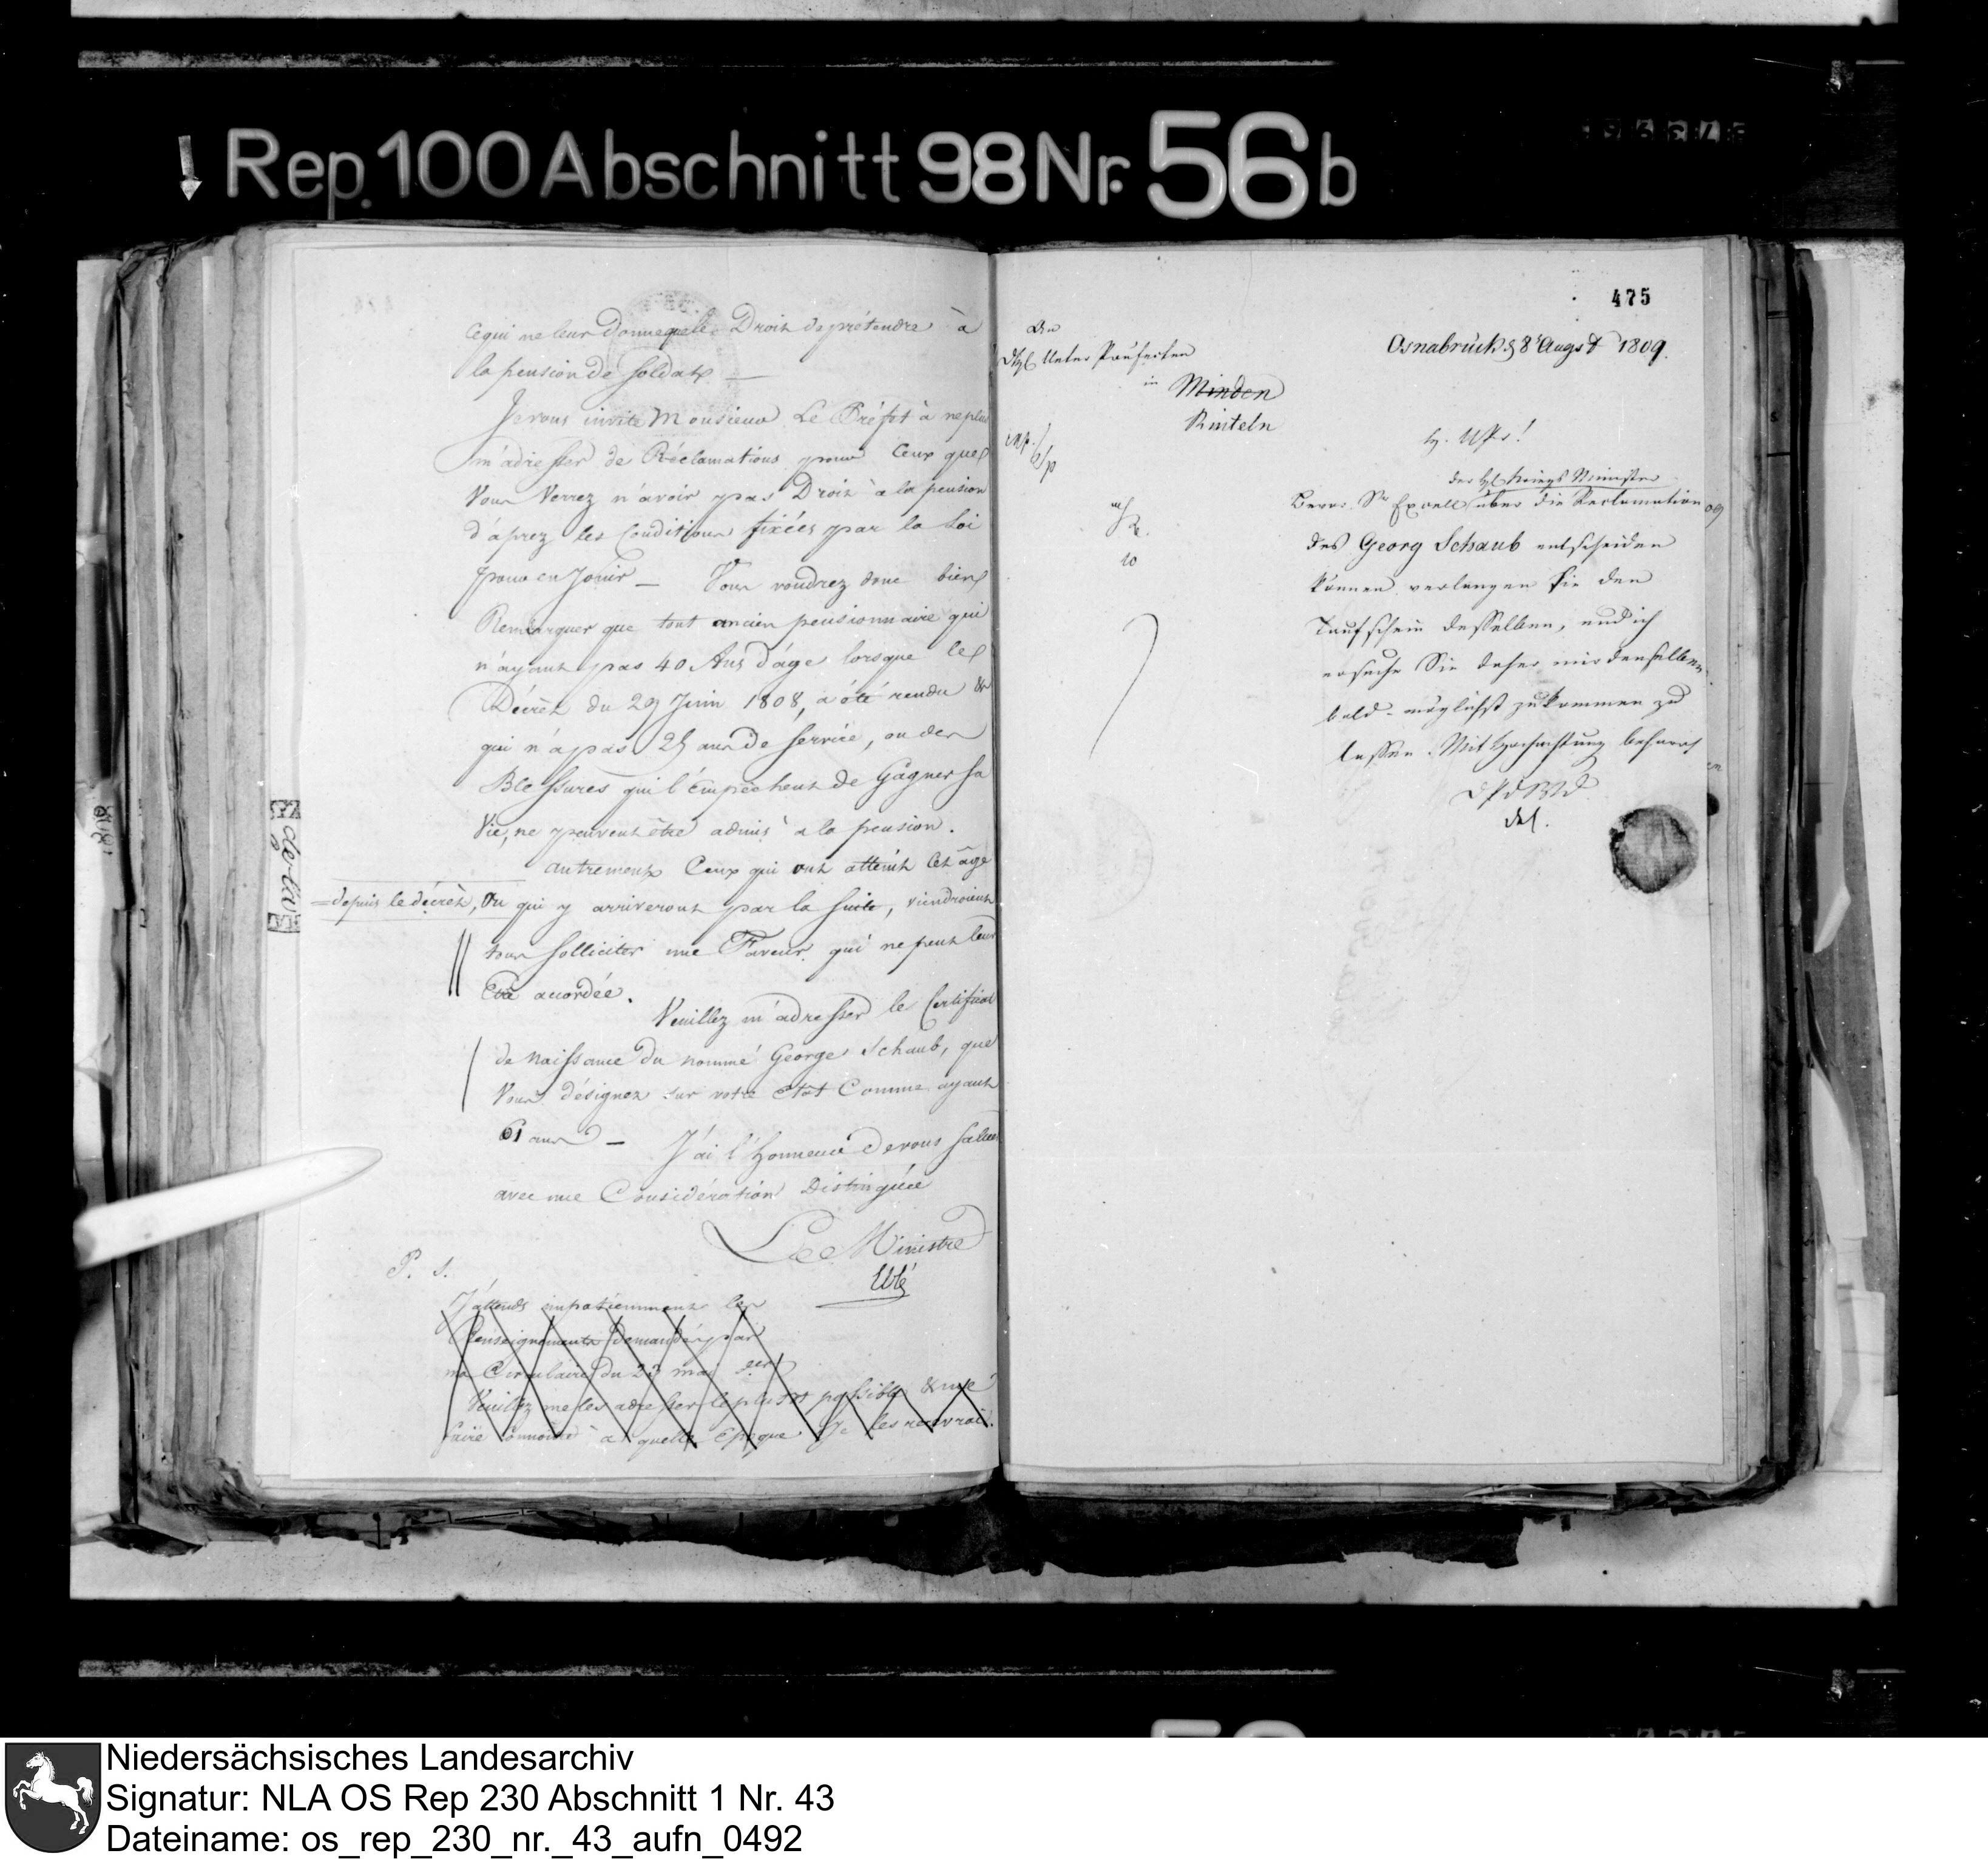 Rep. 100 Abschnitt 98 Nr. 56b
ce qui ne leur donne que le Droit de prétendre à
la pension de soldat —
Je vous invite Monsieur Le Préfet à ne plus
m'adresser de Réclamations pour Ceux que
Vous Verrez n'avoir pas Droit à la pension
d'aprez les Conditions fixées par la Loi
pour en Jouir — Vous voudrez donc bien
Remarquer que tout ancien pensionnaire qui
n'ayant pas 40 Ans d'âge lorsque le
Décret du 29 Juin 1808, a été rendu &
qui n'a pas 25 ans de service, ou des
Blessures qui l'Empêchent de Gagner sa
Vie, ne peuvent être admis à la pension.
autrement Ceux qui ont atteint Cet âge
=depuis le décrèt, Ou qui y arriveront par la suite, viendroient
tous solliciter une Faveur qui ne peut leur
Etre accordée.
Veuillez m'adresser le Certificat
de Naissance du nommé George Schaub, que
Vous désignez sur votre Etat Comme ayant
61 ans — J'ai l'Honneur de vous saluer
avec une Considération Distinguée
Le Ministre
P. S.
J'attends impatiemment les
Renseignements demandés par
ma Circulaire du 23 mai der
Veuillez me les adresser le plutôt possible & me
faire connoitre à quelle Epoque Je les recevrai.
475
An
Unter Präfecten
in Minden
Rinteln
Osnabrück d 8t Augst 1809.
der H. Kriegs Minister
Bevor Sr Excell über die Reclamation
des Georg Schaub entscheiden
können, verlangen Sie den
Taufschein desselben, und ich
ersuche Sie daher mir denselben
bald-möglichst zukommen zu
lassen. Mit Hochachtung beharre
Niedersächsisches Landesarchiv
Signatur: NLA OS Rep 230 Abschnitt 1 Nr. 43
Dateiname: os_rep_230_nr._43_aufn_0492